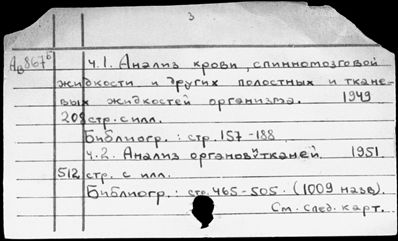 3
Ав867б ч.1. Анализ крови, спинномозговой
жидкости и других полостных и ткане-
вых жидкостей организма. 1949
208 стр. с илл.
Библиогр.: стр. 157-188
ч.2. Анализ органов и тканей. 1951.
512 стр. с илл.
Библиогр.: стр. 465-505. (1009 назв).
См. след. карт.